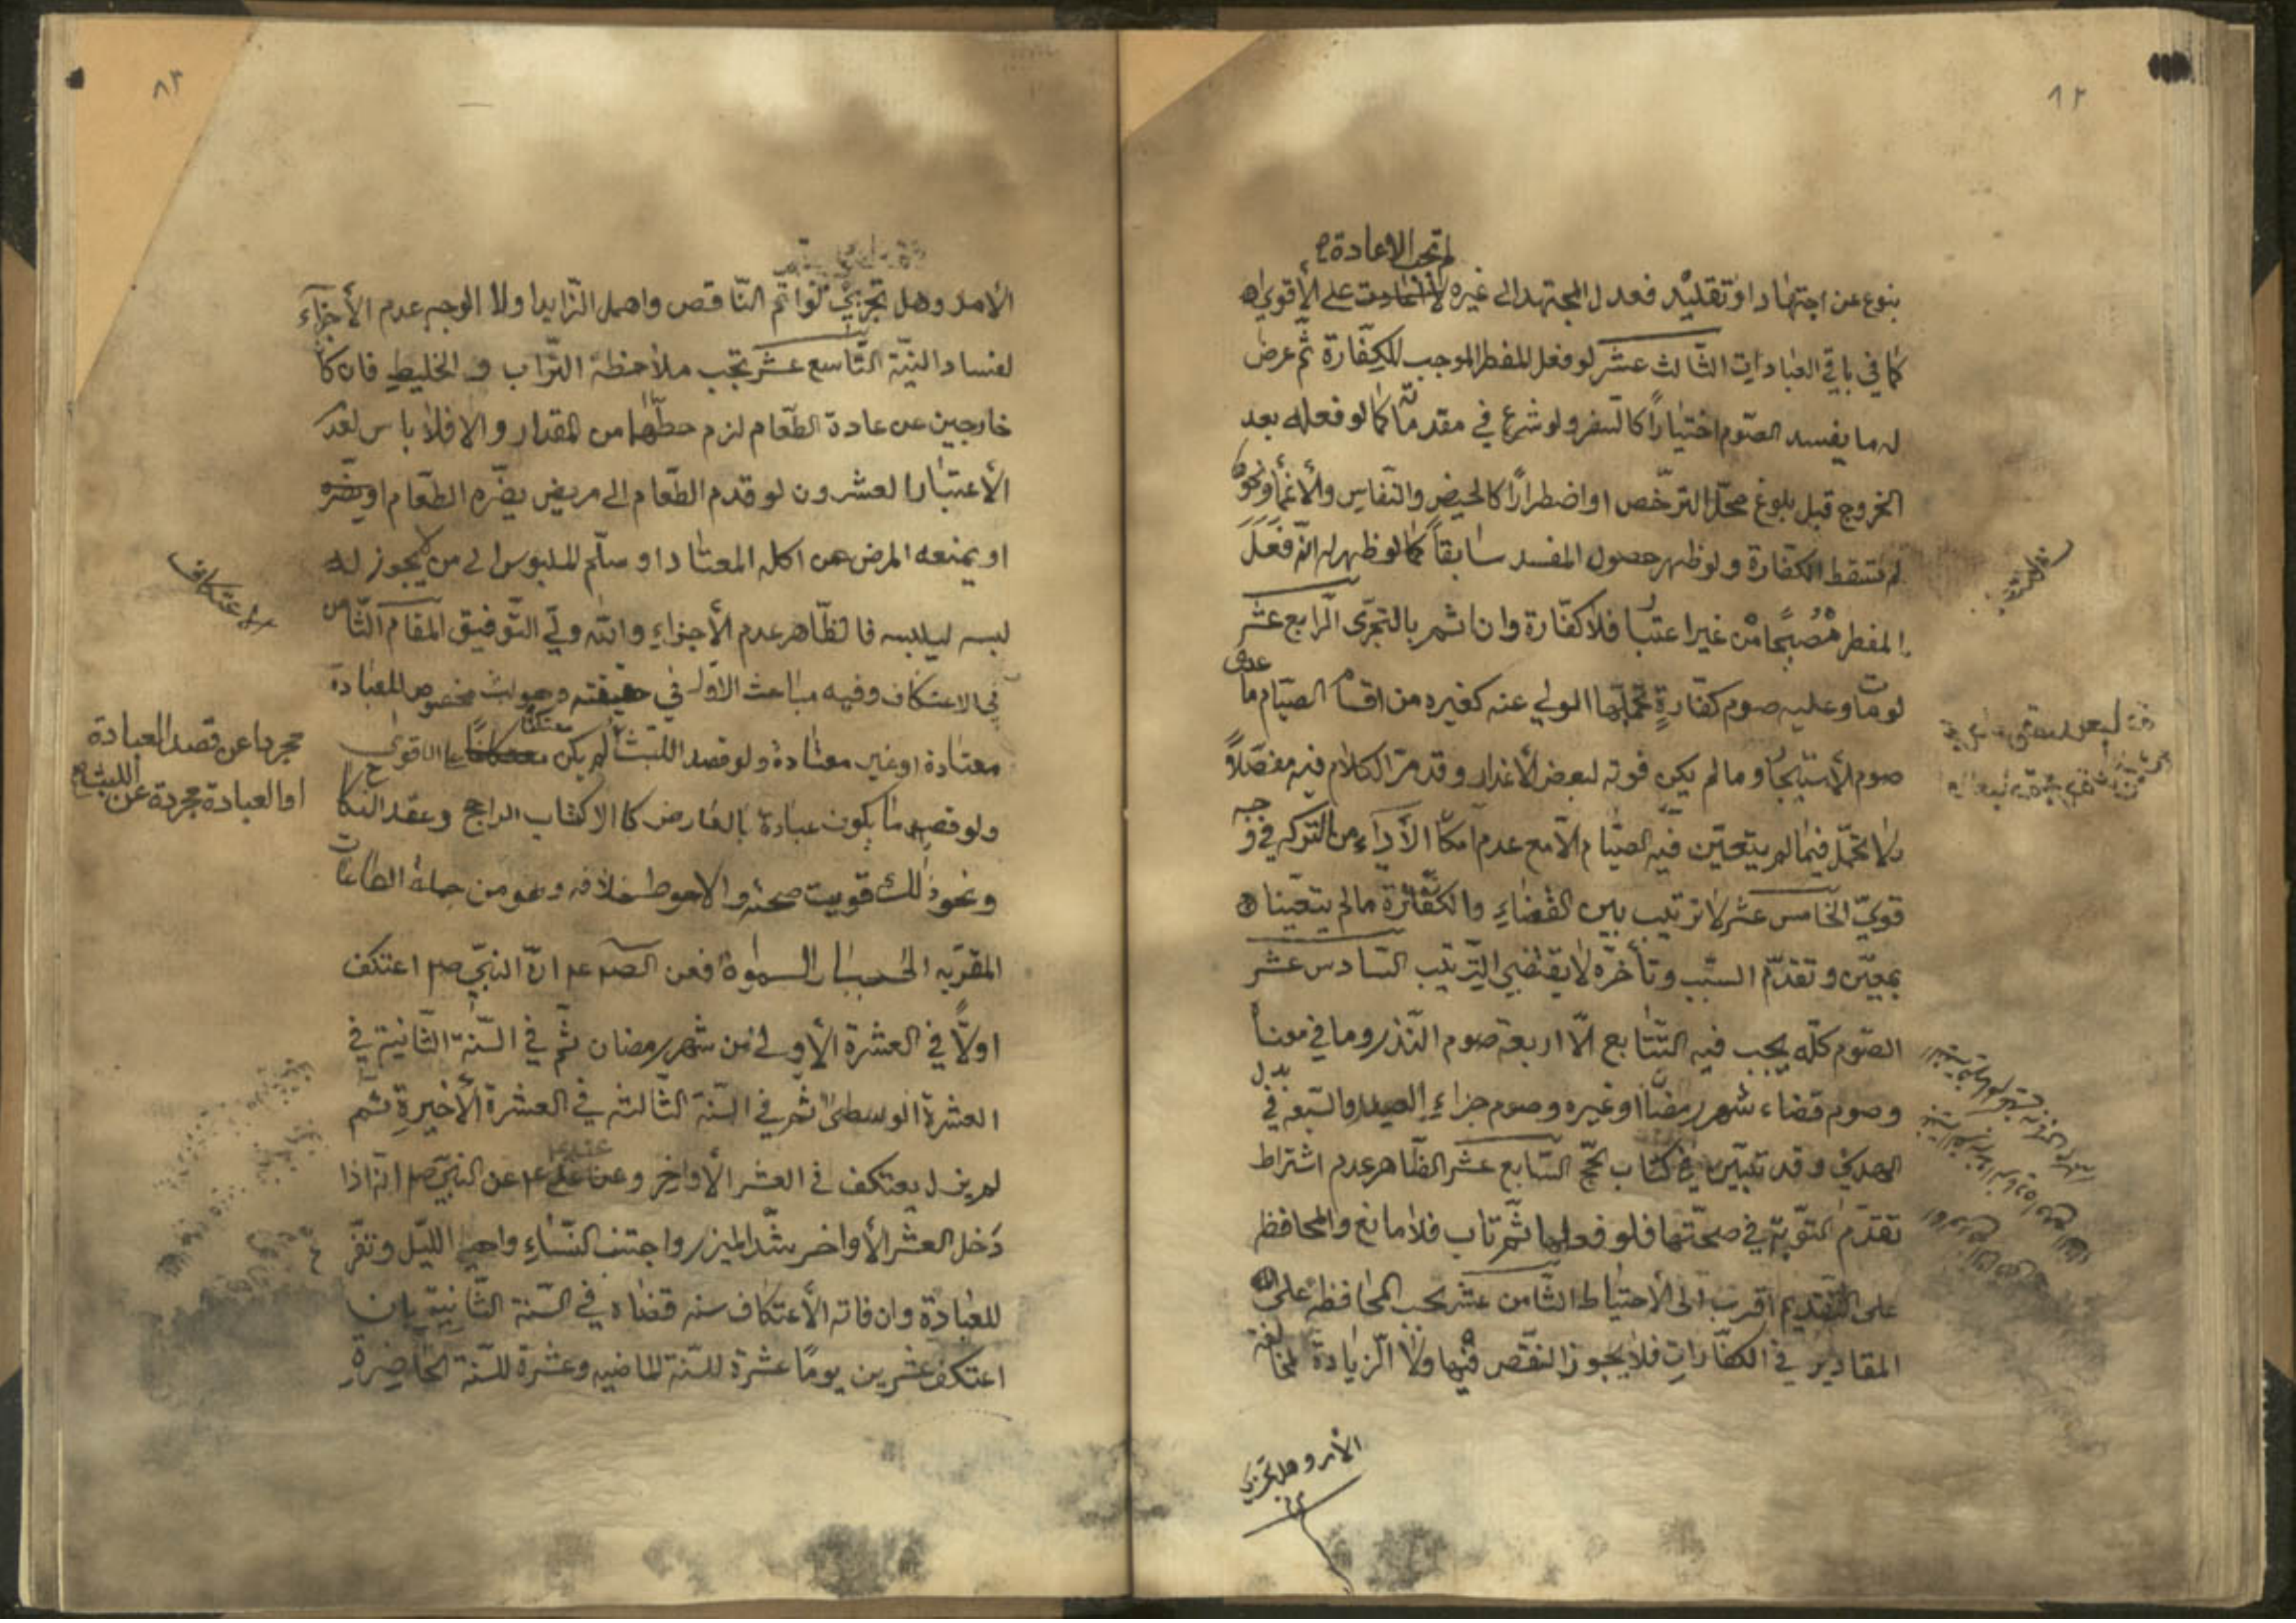 ٨٢
لم تجب الاعادة
بنوع عن اجتهاد او تقليد فعدل المجتهد الى غيره على الأقوى
كما في باقي العبادات الثالث عشر لو فعل المفطر الموجب للكفّارة ثم عرض
له ما يفسد الصّوم اختياراً كالسفر ولو شرع في مقدماته كما لو فعله بعد
الخروج قبل بلوغ محلّ الترخّص او اضطراراً كالحيض والنّفاس والأغماء ونحوه
لم تسقط الكفّارة ولو ظهر حصول المفسد سابقاً كما لو ظهر له انّه فعل
المفطر مصبحاً من غير اعتبار فلا كفّارة وان اثم بالتجرّى الرابع عشر
لو مات وعليه صوم كفّارةٍ تحمّلها الولي عنه كغيره من اقسام الصيام ما عدى
صوم الأستيجار وما لم يكن فوته لبعض الأعذار وقد مرّ الكلام فيه مفصّلاً
ولا تحمّل فيما لم يتعيّن فيه الصيام الّا مع عدم امكان الأداء من التركه في وجه
قويّ الخامس عشر لا ترتيب بين القضاء والكفّارة ما لم يتعيّنا
بمعيّن وتقدّم السبب وتأخّره لا يقتضي الترتيب السادس عشر
الصّوم كلّه يجب فيه التّتابع الّا اربعة صوم النّذر وما في معناه
وصوم قضاء شهر رمضان وغيره وصوم جزاء الصيد والسّبعة في بدل
الهدي وقد تبيّن في كتاب الحج السّابع عشر الظّاهر عدم اشتراط
تقدّم التّوبة في صحّتها فلو فعلها ثم تاب فلا مانع والمحافظة
على التّقديم اقرب الى الأحتياط الثّامن عشر يجب المحافظة على
المقادير في الكفّارات فلا يجوز النقّص فيها ولا الزيادة لمخالفة
الأمر وهل تجزي
٨٣
الأمر وهل تجزي لو اتم النّاقص واهمل الزّايد اولا الوجه عدم الأجزآء
لفساد النيّة التّاسع عشر تجب ملاحظة التّراب و الخليط فان كانا
خارجين عن عادة الطّعام لزم حطّهما من المقدار والا فلا باس لعدم
الأعتبار العشرون لو قدم الطّعام الى مريض يضّره الطّعام
او يمنعه المرض عن اكله المعتاد او سلّم الملبوس الى من لا يجوز له
لبسه ليلبسه فالظّاهر عدم الأجزاء والله وليّ التّوفيق المقام الثّامن
في الاعتكاف وفيه مباحث الاوّل في حقيقته وهو لبث مخصوص للعبادة
الاعتكاف
معتادة او غير معتادة ولو قصد اللّبث لم يكن معتكفاً على الاقوى
مجردا عن قصد العبادة
او العبادة مجردة عن اللبث
ولو قصد ما يكون عبادة بالعارض كالاكتساب الراجح وعقد النكاح
ونحو ذلك قويت صحته والاحوط خلافه وهو من جملة الطاعات
المقرّبه الى فعن الصّ عم انّ النبيّ صم اعتكف
اولاً في العشرة الأولى من شهر رمضان ثم في السّنة الثانية في
العشرة الوسطى ثم في السّنة الثالثة في العشرة الأخيرة ثم
لم يزل يعتكف في العشر الأواخر وعن علي عم عن النبيّ صم انّه اذا
دخل العشر الأواخر شدّ الميزر واجتنب النّساء واحيى اللّيل وتفرّغ
للعبادة وان فاته الأعتكاف سنه قضاه في السّنة الثّانية بان
اعتكف عشرين يوماً عشرة للسّنة الماضيه وعشرة للسّنة الحاضرة